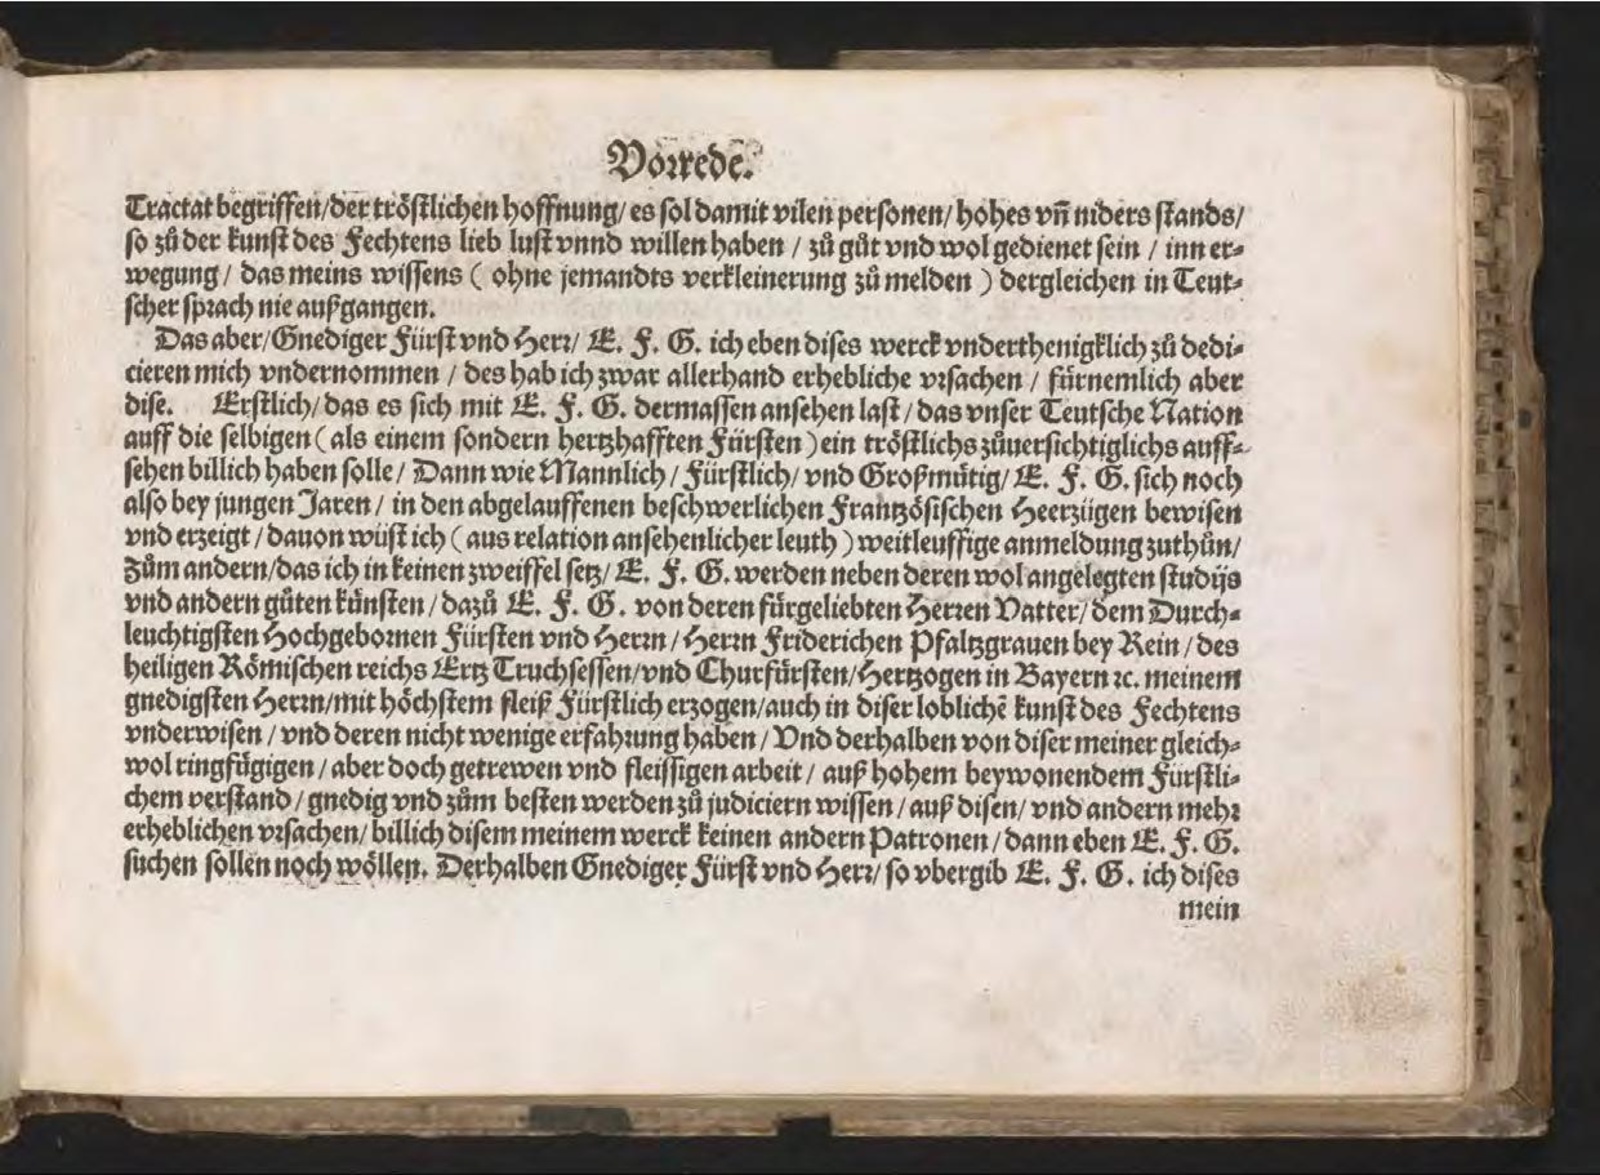 Vorrede.
Tractat begriffen/ der tröstlichen hoffnung/ es sol damit vilen personen/ hohes vñ niders stands/
so zů der kunst des Fechtens lieb lust vnnd willen haben / zů gůt vnd wol gedienet sein / inn er-
wegung / das meins wissens ( ohne jemandts verkleinerung zů melden ) dergleichen in Teut-
scher sprach nie außgangen.
Das aber/ Gnediger Fürst vnd Herr/ E. F. G. ich eben dises werck vnderthenigklich zů dedi-
cieren mich vndernommen / des hab ich zwar allerhand erhebliche vrsachen / fürnemlich aber
dise. Erstlich/ das es sich mit E. F. G. dermassen ansehen last / das vnser Teutsche Nation
auff die selbigen ( als einem sondern hertzhafften Fürsten ) ein tröstlichs zůuersichtiglichs auff-
sehen billich haben solle / Dann wie Mannlich / Fürstlich/ vnd Großmütig/ E. F. G. sich noch
also bey jungen Jaren / in den abgelauffenen beschwerlichen Frantzösischen Heerzügen bewisen
vnd erzeigt / dauon wüst ich ( aus relation ansehenlicher leuth ) weitleuffige anmeldung zuthůn/
Zům andern/ das ich in keinen zweiffel setz/ E. F. G. werden neben deren wol angelegten studijs
vnd andern gůten künsten / dazů E. F. G. von deren fürgeliebten Herren Vatter/ dem Durch-
leuchtigsten Hochgebornen Fürsten vnd Herrn / Herrn Friderichen Pfaltzgrauen bey Rein / des
heiligen Römischen reichs Ertz Truchsessen/ vnd Churfürsten/ Hertzogen in Bayern ꝛc. meinem
gnedigsten Herrn/ mit höchstem fleiß Fürstlich erzogen/ auch in diser lobliche͂ kunst des Fechtens
vnderwisen / vnd deren nicht wenige erfahrung haben / Vnd derhalben von diser meiner gleich-
wol ringfügigen / aber doch getrewen vnd fleissigen arbeit / auß hohem beywonendem Fürstli-
chem verstand / gnedig vnd zům besten werden zů judiciern wissen / auß disen/ vnd andern mehr
erheblichen vrsachen/ billich disem meinem werck keinen andern Patronen / dann eben E. F. G.
suchen sollen noch wöllen. Derhalben Gnediger Fürst vnd Herr/ so vbergib E. F. G. ich dises
mein